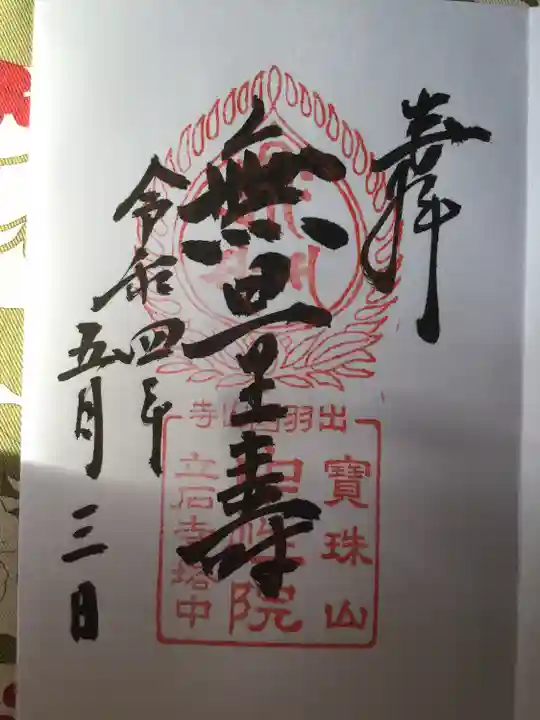 奉
無量壽
令和四年
五月三日
出羽国山寺
寶珠山
院
立石寺塔中